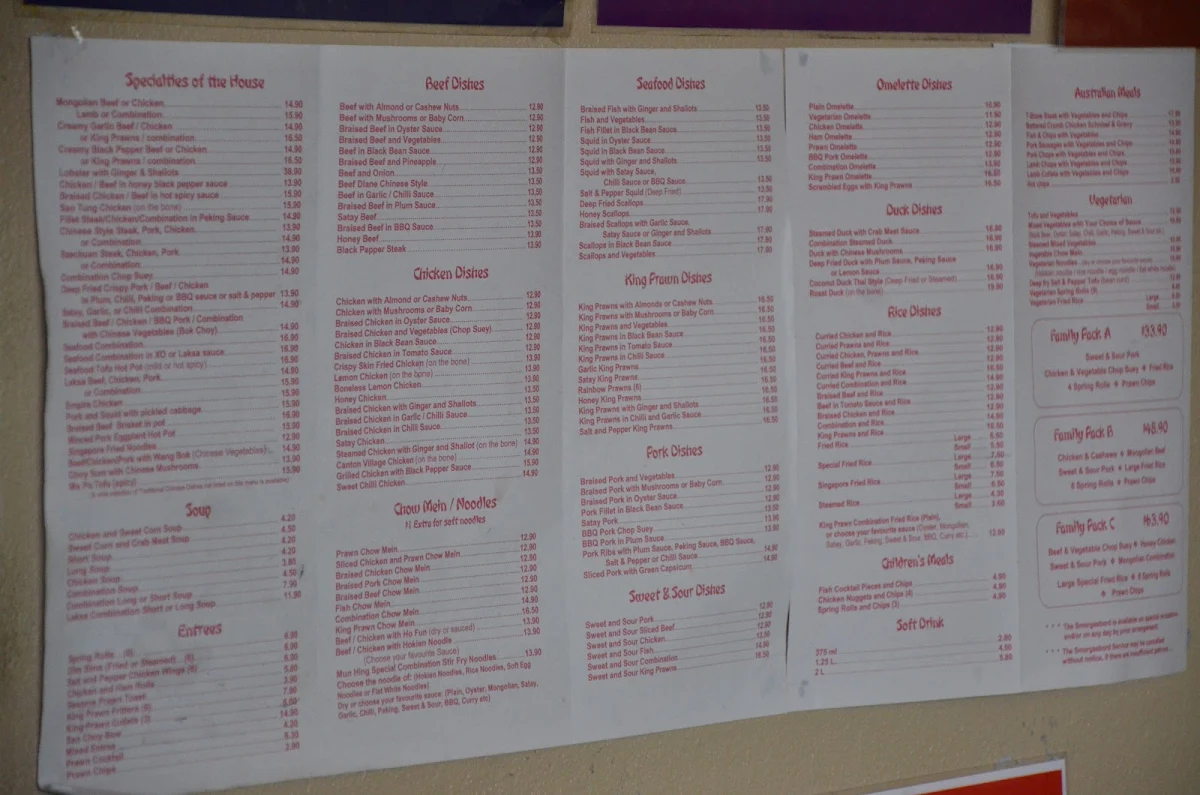 Specialties of the House
Mongolian Beef or Chicken 14.90
Lamb or Combination 15.90
Creamy Garlic Beef / Chicken 14.90
or King Prawns / combination 16.50
Creamy Black Pepper Beef or Chicken 14.90
or King Prawns / combination 16.50
Lobster with Ginger & Shallots
Chicken / Beef in honey black pepper sauce 13.90
Braised Chicken / Beef in hot spicy sauce 15.90
San Tung Chicken (on the bone) 15.90
Fillet Steak/Chicken/Combination in Peking Sauce 14.90
Chinese Style Steak, Pork, Chicken, 13.90
or Combination 14.90
Szechuan Steak, Chicken, Pork 13.90
or Combination 14.90
Combination Chop Suey 14.90
Deep Fried Crispy Pork / Beef / Chicken
in Plum, Chilli, Peking or BBQ sauce or salt & pepper 13.90
Satay, Garlic, or Chilli Combination 14.90
Braised Beef / Chicken / BBQ Pork / Combination
with Chinese Vegetables (Bok Choy) 14.90
Seafood Combination 16.90
Seafood Combination in XO or Laksa sauce 16.90
Seafood Tofu Hot Pot (mild or hot spicy) 16.90
Laksa Beef, Chicken, Pork 14.90
or Combination 15.90
Empire Chicken 15.90
Pork and Squid with pickled cabbage 15.90
Braised Beef Brisket in pot 16.90
Minced Pork Eggplant Hot Pot 15.90
Singapore Fried Noodles 12.90
Beef/Chicken/Pork with Wang Bok (Chinese Vegetables) 14.90
Choy Sum with Chinese Mushrooms 13.90
Ma Po Tofu (spicy) 15.90
Soup
Chicken and Sweet Corn Soup 4.20
Sweet Corn and Crab Meat Soup 4.50
Short Soup 4.20
Long Soup 4.20
Chicken Soup 3.80
Combination Soup 4.50
Combination Long or Short Soup 7.90
Laksa Combination Short or Long Soup 11.90
Entrees
Spring Rolls
Dim Sims (Fried or Steamed)
Salt and Pepper Chicken Wings (6)
Chicken and Ham Rolls
Sesame Prawn Toast
King Prawn Fritters (6)
King Prawn Cutlets (3)
San Choy Bow
Mixed Entree
Prawn Cocktail
Prawn Chips
Beef Dishes
Beef with Almond or Cashew Nuts 12.90
Beef with Mushrooms or Baby Corn 12.90
Braised Beef in Oyster Sauce 12.90
Braised Beef and Vegetables 12.90
Beef in Black Bean Sauce 12.90
Braised Beef and Pineapple 12.90
Beef and Onion 13.50
Beef Diane Chinese Style 13.50
Beef in Garlic / Chilli Sauce 13.50
Braised Beef in Plum Sauce 13.50
Satay Beef 13.50
Braised Beef in BBQ Sauce 13.50
Honey Beef 13.90
Black Pepper Steak 13.90
Chicken Dishes
Chicken with Almond or Cashew Nuts 12.90
Chicken with Mushrooms or Baby Corn 12.90
Braised Chicken in Oyster Sauce 12.90
Braised Chicken and Vegetables (Chop Suey) 12.90
Chicken in Black Bean Sauce 12.90
Braised Chicken in Tomato Sauce 12.90
Crispy Skin Fried Chicken (on the bone) 13.50
Lemon Chicken (on the bone) 13.50
Boneless Lemon Chicken 13.90
Honey Chicken 13.50
Braised Chicken with Ginger and Shallots 13.50
Braised Chicken in Garlic / Chilli Sauce 13.50
Braised Chicken in Chilli Sauce 13.50
Satay Chicken 13.50
Steamed Chicken with Ginger and Shallot (on the bone) 14.90
Canton Village Chicken (on the bone) 14.90
Grilled Chicken with Black Pepper Sauce 15.90
Sweet Chilli Chicken 14.90
Chow Mein / Noodles
$1 Extra for soft noodles
Prawn Chow Mein 12.90
Sliced Chicken and Prawn Chow Mein 12.90
Braised Chicken Chow Mein 12.90
Braised Pork Chow Mein 12.90
Braised Beef Chow Mein 12.90
Fish Chow Mein 12.90
Combination Chow Mein 14.90
King Prawn Chow Mein 16.50
Beef / Chicken with Ho Fun (dry or sauced) 13.90
Beef / Chicken with Hokien Noodle 13.90
(Choose your favourite Sauce)
Mun Hing Special Combination Stir Fry Noodles 13.90
Choose the noodle of: (Hokien Noodles, Rice Noodles, Soft Egg
Noodles or Flat White Noodles)
Dry or choose your favourite sauce: (Plain, Oyster, Mongolian, Satay,
Garlic, Chilli, Peking, Sweet & Sour, BBQ, Curry etc)
Seafood Dishes
Braised Fish with Ginger and Shallots 13.50
Fish and Vegetables 13.50
Fish Fillet in Black Bean Sauce 13.50
Squid in Oyster Sauce 13.50
Squid in Black Bean Sauce 13.50
Squid with Ginger and Shallots 13.50
Squid with Satay Sauce,
Chilli Sauce or BBQ Sauce 13.50
Salt & Pepper Squid (Deep Fried) 13.50
Deep Fried Scallops 17.90
Honey Scallops 17.90
Braised Scallops with Garlic Sauce,
Satay Sauce or Ginger and Shallots 17.90
Scallops in Black Bean Sauce 17.90
Scallops and Vegetables 17.90
King Prawn Dishes
King Prawns with Almonds or Cashew Nuts 16.50
King Prawns with Mushrooms or Baby Corn 16.50
King Prawns and Vegetables 16.50
King Prawns in Black Bean Sauce 16.50
King Prawns in Tomato Sauce 16.50
King Prawns in Chilli Sauce 16.50
Garlic King Prawns 16.50
Satay King Prawns 16.50
Rainbow Prawns (6) 16.50
Honey King Prawns 16.50
King Prawns with Ginger and Shallots 16.50
King Prawns in Chilli and Garlic Sauce 16.50
Salt and Pepper King Prawns 16.50
Pork Dishes
Braised Pork and Vegetables 12.90
Braised Pork with Mushrooms or Baby Corn 12.90
Braised Pork in Oyster Sauce 12.90
Pork Fillet in Black Bean Sauce 12.90
Satay Pork 12.90
BBQ Pork Chop Suey 13.90
BBQ Pork in Plum Sauce 13.90
Pork Ribs with Plum Sauce, Peking Sauce, BBQ Sauce,
Salt & Pepper or Chilli Sauce 14.90
Sliced Pork with Green Capsicum 14.90
Sweet & Sour Dishes
Sweet and Sour Pork 12.90
Sweet and Sour Sliced Beef 12.90
Sweet and Sour Chicken 12.90
Sweet and Sour Fish 13.50
Sweet and Sour Combination 14.90
Sweet and Sour King Prawns 16.50
Omelette Dishes
Plain Omelette 10.90
Vegetarian Omelette 11.90
Chicken Omelette 12.90
Ham Omelette 12.90
Prawn Omelette 12.90
BBQ Pork Omelette 12.90
Combination Omelette 13.90
King Prawn Omelette 16.50
Scrambled Eggs with King Prawns 16.50
Duck Dishes
Steamed Duck with Crab Meat Sauce 16.90
Combination Steamed Duck 16.90
Duck with Chinese Mushrooms 16.90
Deep Fried Duck with Plum Sauce, Peking Sauce
or Lemon Sauce 16.90
Coconut Duck Thai Style (Deep Fried or Steamed) 16.90
Roast Duck (on the bone) 19.90
Rice Dishes
Curried Chicken and Rice 12.90
Curried Prawns and Rice 12.90
Curried Chicken, Prawns and Rice 12.90
Curried Beef and Rice 12.90
Curried King Prawns and Rice 16.50
Curried Combination and Rice 14.90
Braised Beef and Rice 12.90
Beef in Tomato Sauce and Rice 12.90
Braised Chicken and Rice 12.90
Combination and Rice 14.90
King Prawns and Rice 16.50
Fried Rice Large 6.50
Small 5.50
Special Fried Rice Large 7.50
Small 6.50
Singapore Fried Rice Large 7.50
Small 6.50
Steamed Rice Large 4.30
Small 3.60
King Prawn Combination Fried Rice (Plain),
or choose your favourite sauce (Oyster, Mongolian,
Satay, Garlic, Peking, Sweet & Sour, BBQ, Curry etc.) 13.90
Children's Meals
Fish Cocktail Pieces and Chips 4.90
Chicken Nuggets and Chips (4) 4.90
Spring Rolls and Chips (3) 4.90
Soft Drink
375 ml 2.80
1.25 L 4.50
2 L 5.80
Australian Meals
T-Bone Steak with Vegetables and Chips
Battered Crumb Chicken Schnitzel & Gravy
Fish & Chips with Vegetables
Pork Sausages with Vegetables and Chips
Pork Chops with Vegetables and Chips
Lamb Chops with Vegetables and Chips
Lamb Cutlets with Vegetables and Chips
Hot chips
Vegetarian
Tofu and Vegetables
Mixed Vegetables with Your Choice of Sauce
Steamed Mixed Vegetables
Vegetable Chow Mein
Vegetarian Noodles
Deep fry Salt and Pepper Tofu
Vegetarian Spring Rolls
Vegetarian Fried Rice Large
Small
Family Pack A $33.90
Sweet & Sour Pork
Chicken & Vegetable Chop Suey Fried Rice
4 Spring Rolls Prawn Chips
Family Pack B $48.90
Chicken & Cashews Mongolian Beef
Sweet & Sour Pork Large Fried Rice
6 Spring Rolls Prawn Chips
Family Pack C $63.90
Beef & Vegetable Chop Suey Honey Chicken
Sweet & Sour Pork Mongolian Combination
Large Special Fried Rice 8 Spring Rolls
Prawn Chips
* * * The Smorgasbord is available on special occasion
and/or on any day by prior arrangement.
* * * The Smorgasbord Service may be cancelled
without notice, if there are insufficient patrons...